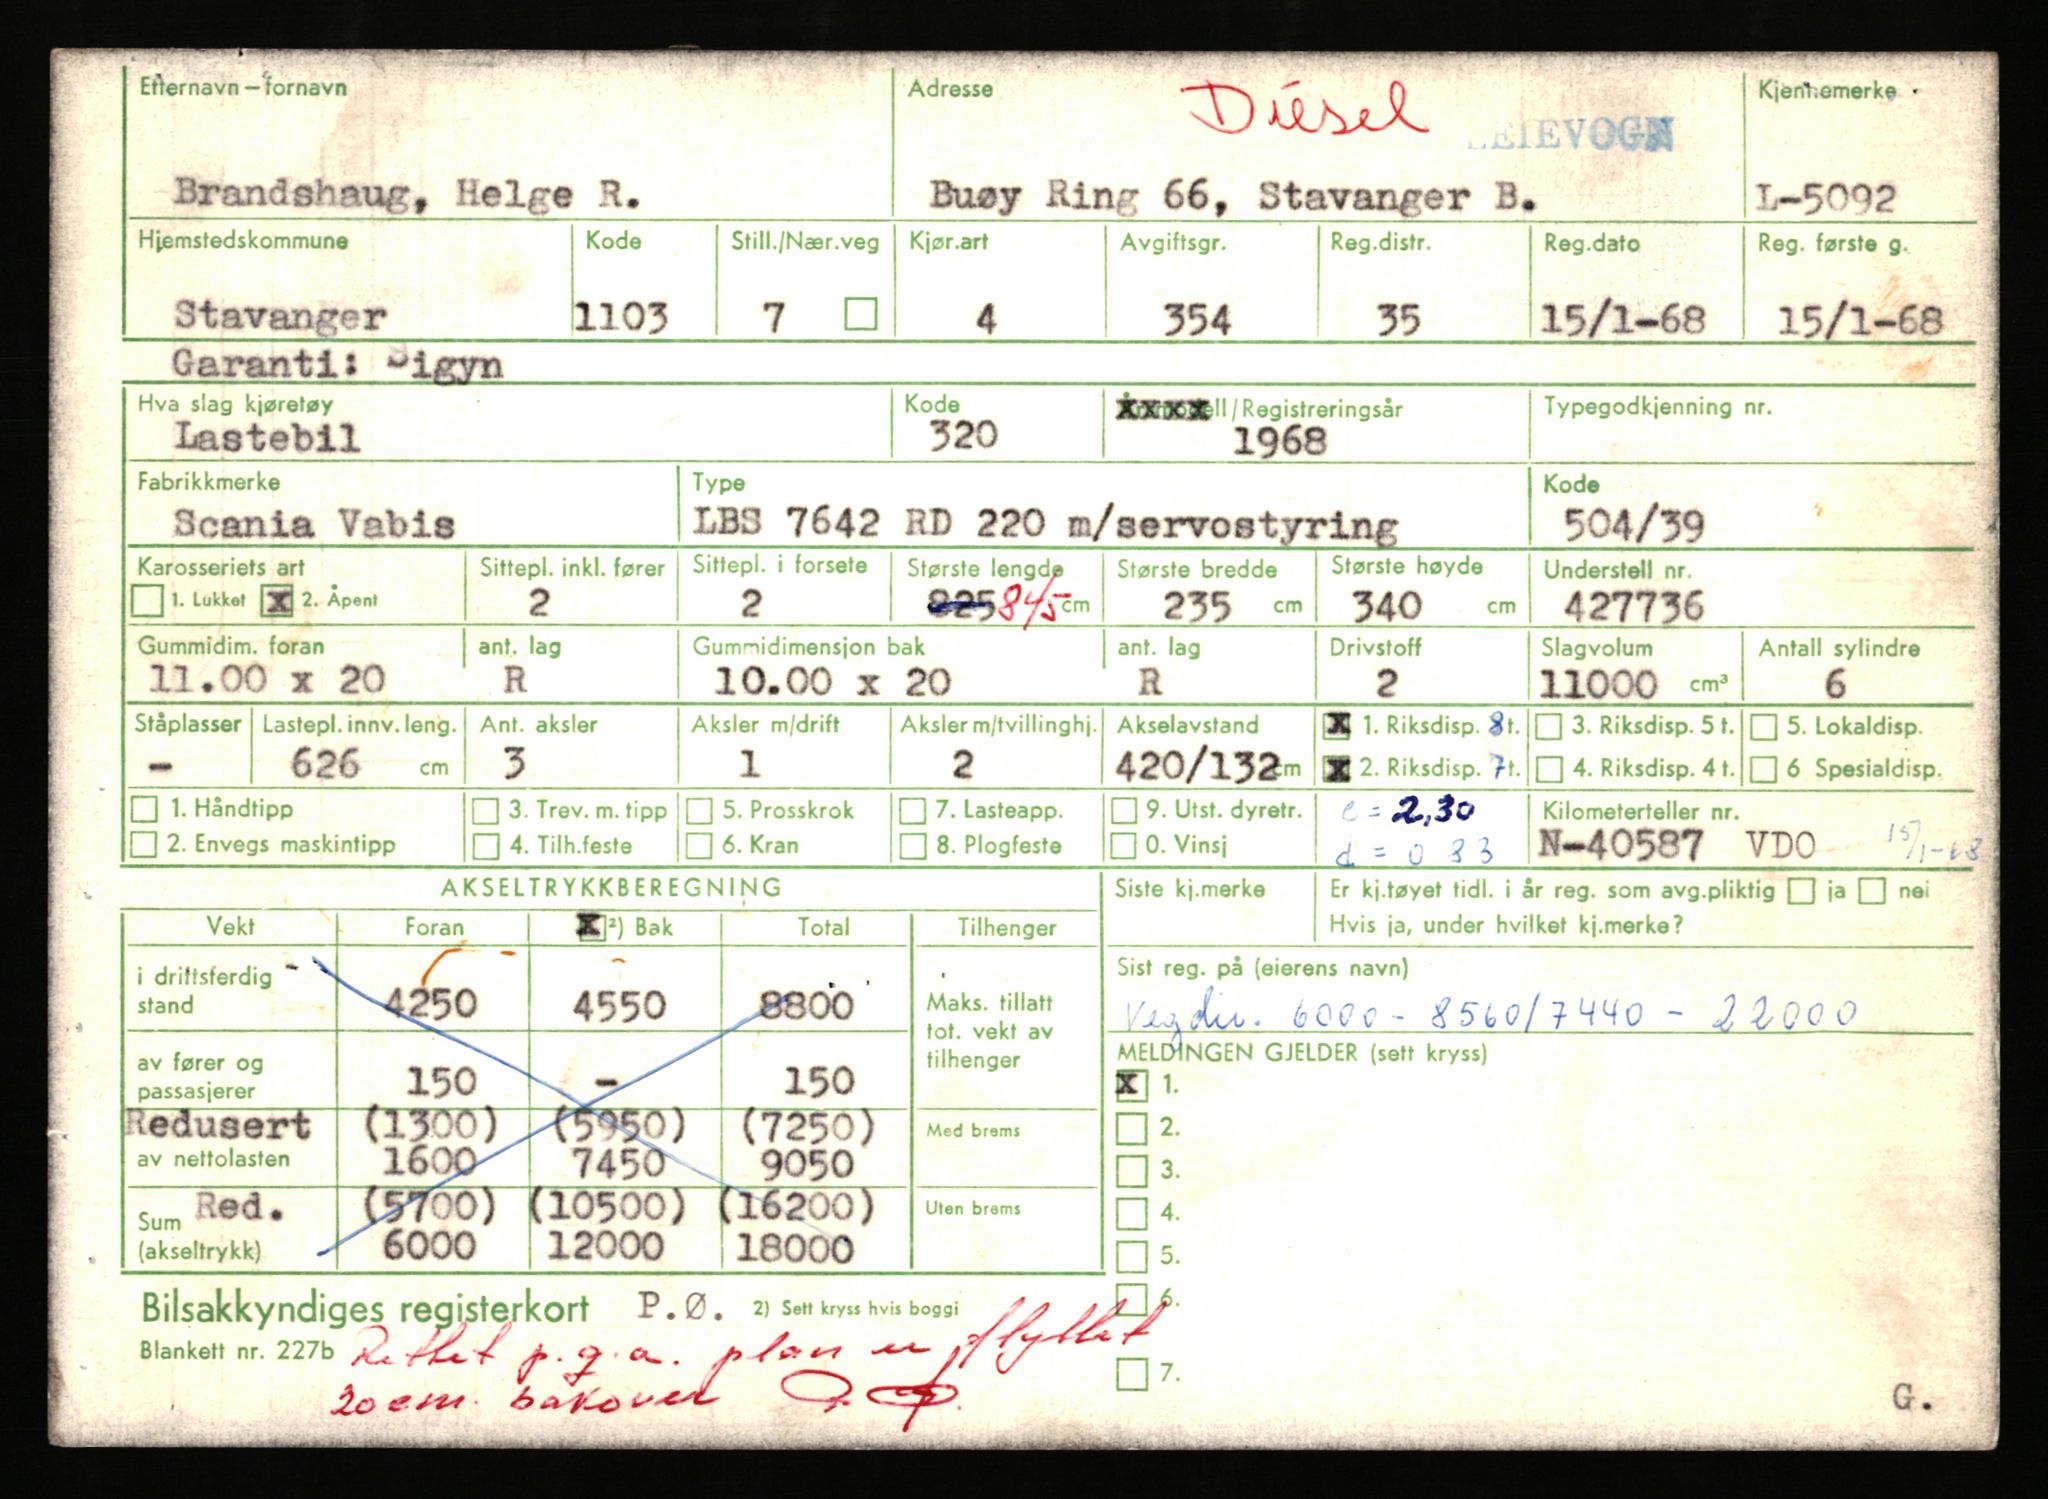 Etternavn – fornavn Adresse Diesel LEIEVOGN Kjennemerke
Brandshaug, Helge R. Buøy Ring 66, Stavanger B. L-5092
Hjemstedskommune Kode Still./Nær.veg Kjør.art Avgiftsgr. Reg.distr. Reg.dato Reg. første g.
Stavanger 1103 7 4 354 35 15/1-68 15/1-68
Garanti: Sigyn
Hva slag kjøretøy Kode xxxx ell/Registreringsår Typegodkjenning nr.
Lastebil 320 1968
Fabrikkmerke Type Kode
Scania Vabis LBS 7642 RD 220 m/servostyring 504/39
Karosseriets art Sittepl. inkl. fører Sittepl. i forsete Største lengde Største bredde Største høyde Understell nr.
1. Lukket X 2. Åpent 2 2 825 845 cm 235 cm 340 cm 427736
Gummidim. foran ant. lag Gummidimensjon bak ant. lag Drivstoff Slagvolum Antall sylindre
11.00 x 20 R 10.00 x 20 R 2 11000 cm³ 6
Ståplasser Lastepl. innv. leng. Ant. aksler Aksler m/drift Aksler m/tvillinghj. Akselavstand X 1. Riksdisp. 8 t. 3. Riksdisp. 5 t. 5. Lokaldisp.
- 626 cm 3 1 2 420/132 cm X 2. Riksdisp. 7 t. 4. Riksdisp. 4 t. 6 Spesialdisp.
1. Håndtipp 3. Trev. m. tipp 5. Prosskrok 7. Lasteapp. 9. Utst. dyretr. c = 2,30 Kilometerteller nr.
2. Envegs maskintipp 4. Tilh.feste 6. Kran 8. Plogfeste 0. Vinsj d = 0 83 N-40587 VDO 15/1-68
AKSELTRYKKBEREGNING Siste kj.merke Er kj.tøyet tidl. i år reg. som avg.pliktig ja nei
Vekt Foran X ²) Bak Total Tilhenger Hvis ja, under hvilket kj.merke?
i driftsferdig stand 4250 4550 8800 Maks. tillatt tot. vekt av tilhenger Sist reg. på (eierens navn)
Vegdir. 6000 - 8560/7440 - 22000
av fører og passasjerer 150 - 150 MELDINGEN GJELDER (sett kryss)
X 1.
Redusert (1300) (5950) (7250) Med brems 2.
av nettolasten 1600 7450 9050 3.
Red. (5700) (10500) (16200) Uten brems 4.
Sum (akseltrykk) 6000 12000 18000 5.
Bilsakkyndiges registerkort P.Ø. 2) Sett kryss hvis boggi 6.
Blankett nr. 227b Rettet p.g.a. plan er flyttet
20 cm. bakover 7.
G.